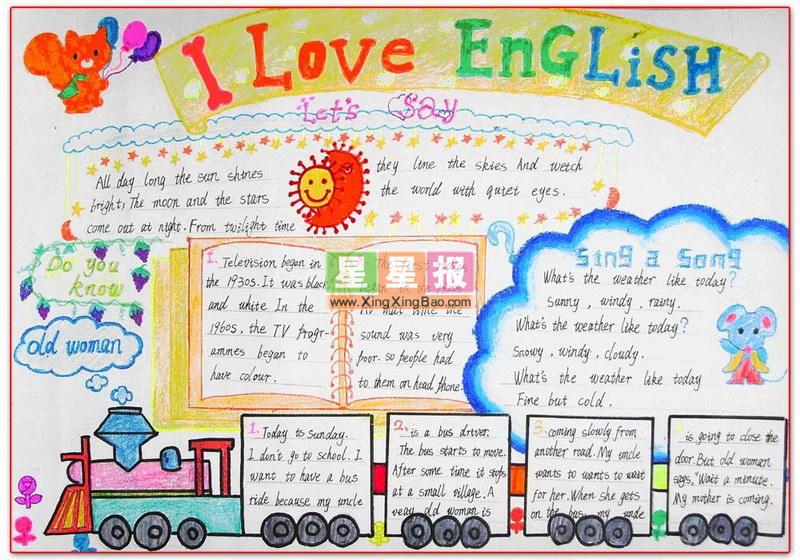 I LOVE ENGLISH
Let's Say
All day long the sun shines
bright. The moon and the stars
come out at night. From twilight time
they line the skies And wetch
the world with quiet eyes.
Do you
know
old woman
1. Television began in
the 1930s. It was black
and white In the
1960s, the TV progr-
ammes began to
have colour.
星星报
www.XingXingBao.com
sound was very
poor. so people had
to them on head phone
Sing a Song
What's the weather like today?
Sunny, windy, rainy.
What's the weather like today?
Snowy, windy, cloudy.
What's the weather like today
Fine but cold.
1. Today is Sunday.
I don't go to school. I
want to have a bus
ride because my uncle
2. is a bus driver.
The bus starts to move.
After some time it stops
at a small village. A
very old woman is
3. coming slowly from
another road. My uncle
wants to wants to wait
for her. When she gets
on the bus, my uncle
is going to close the
door. But old woman
says, "Wait a minute.
My mother is coming.